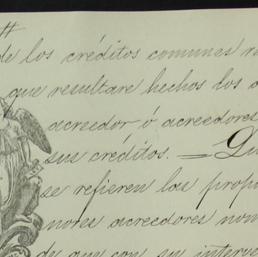 de los créditos comunes
que resultare hechos los
acreedor, ó acreedores
sus créditos. =
se refieren las
nores acreedores
de que con su